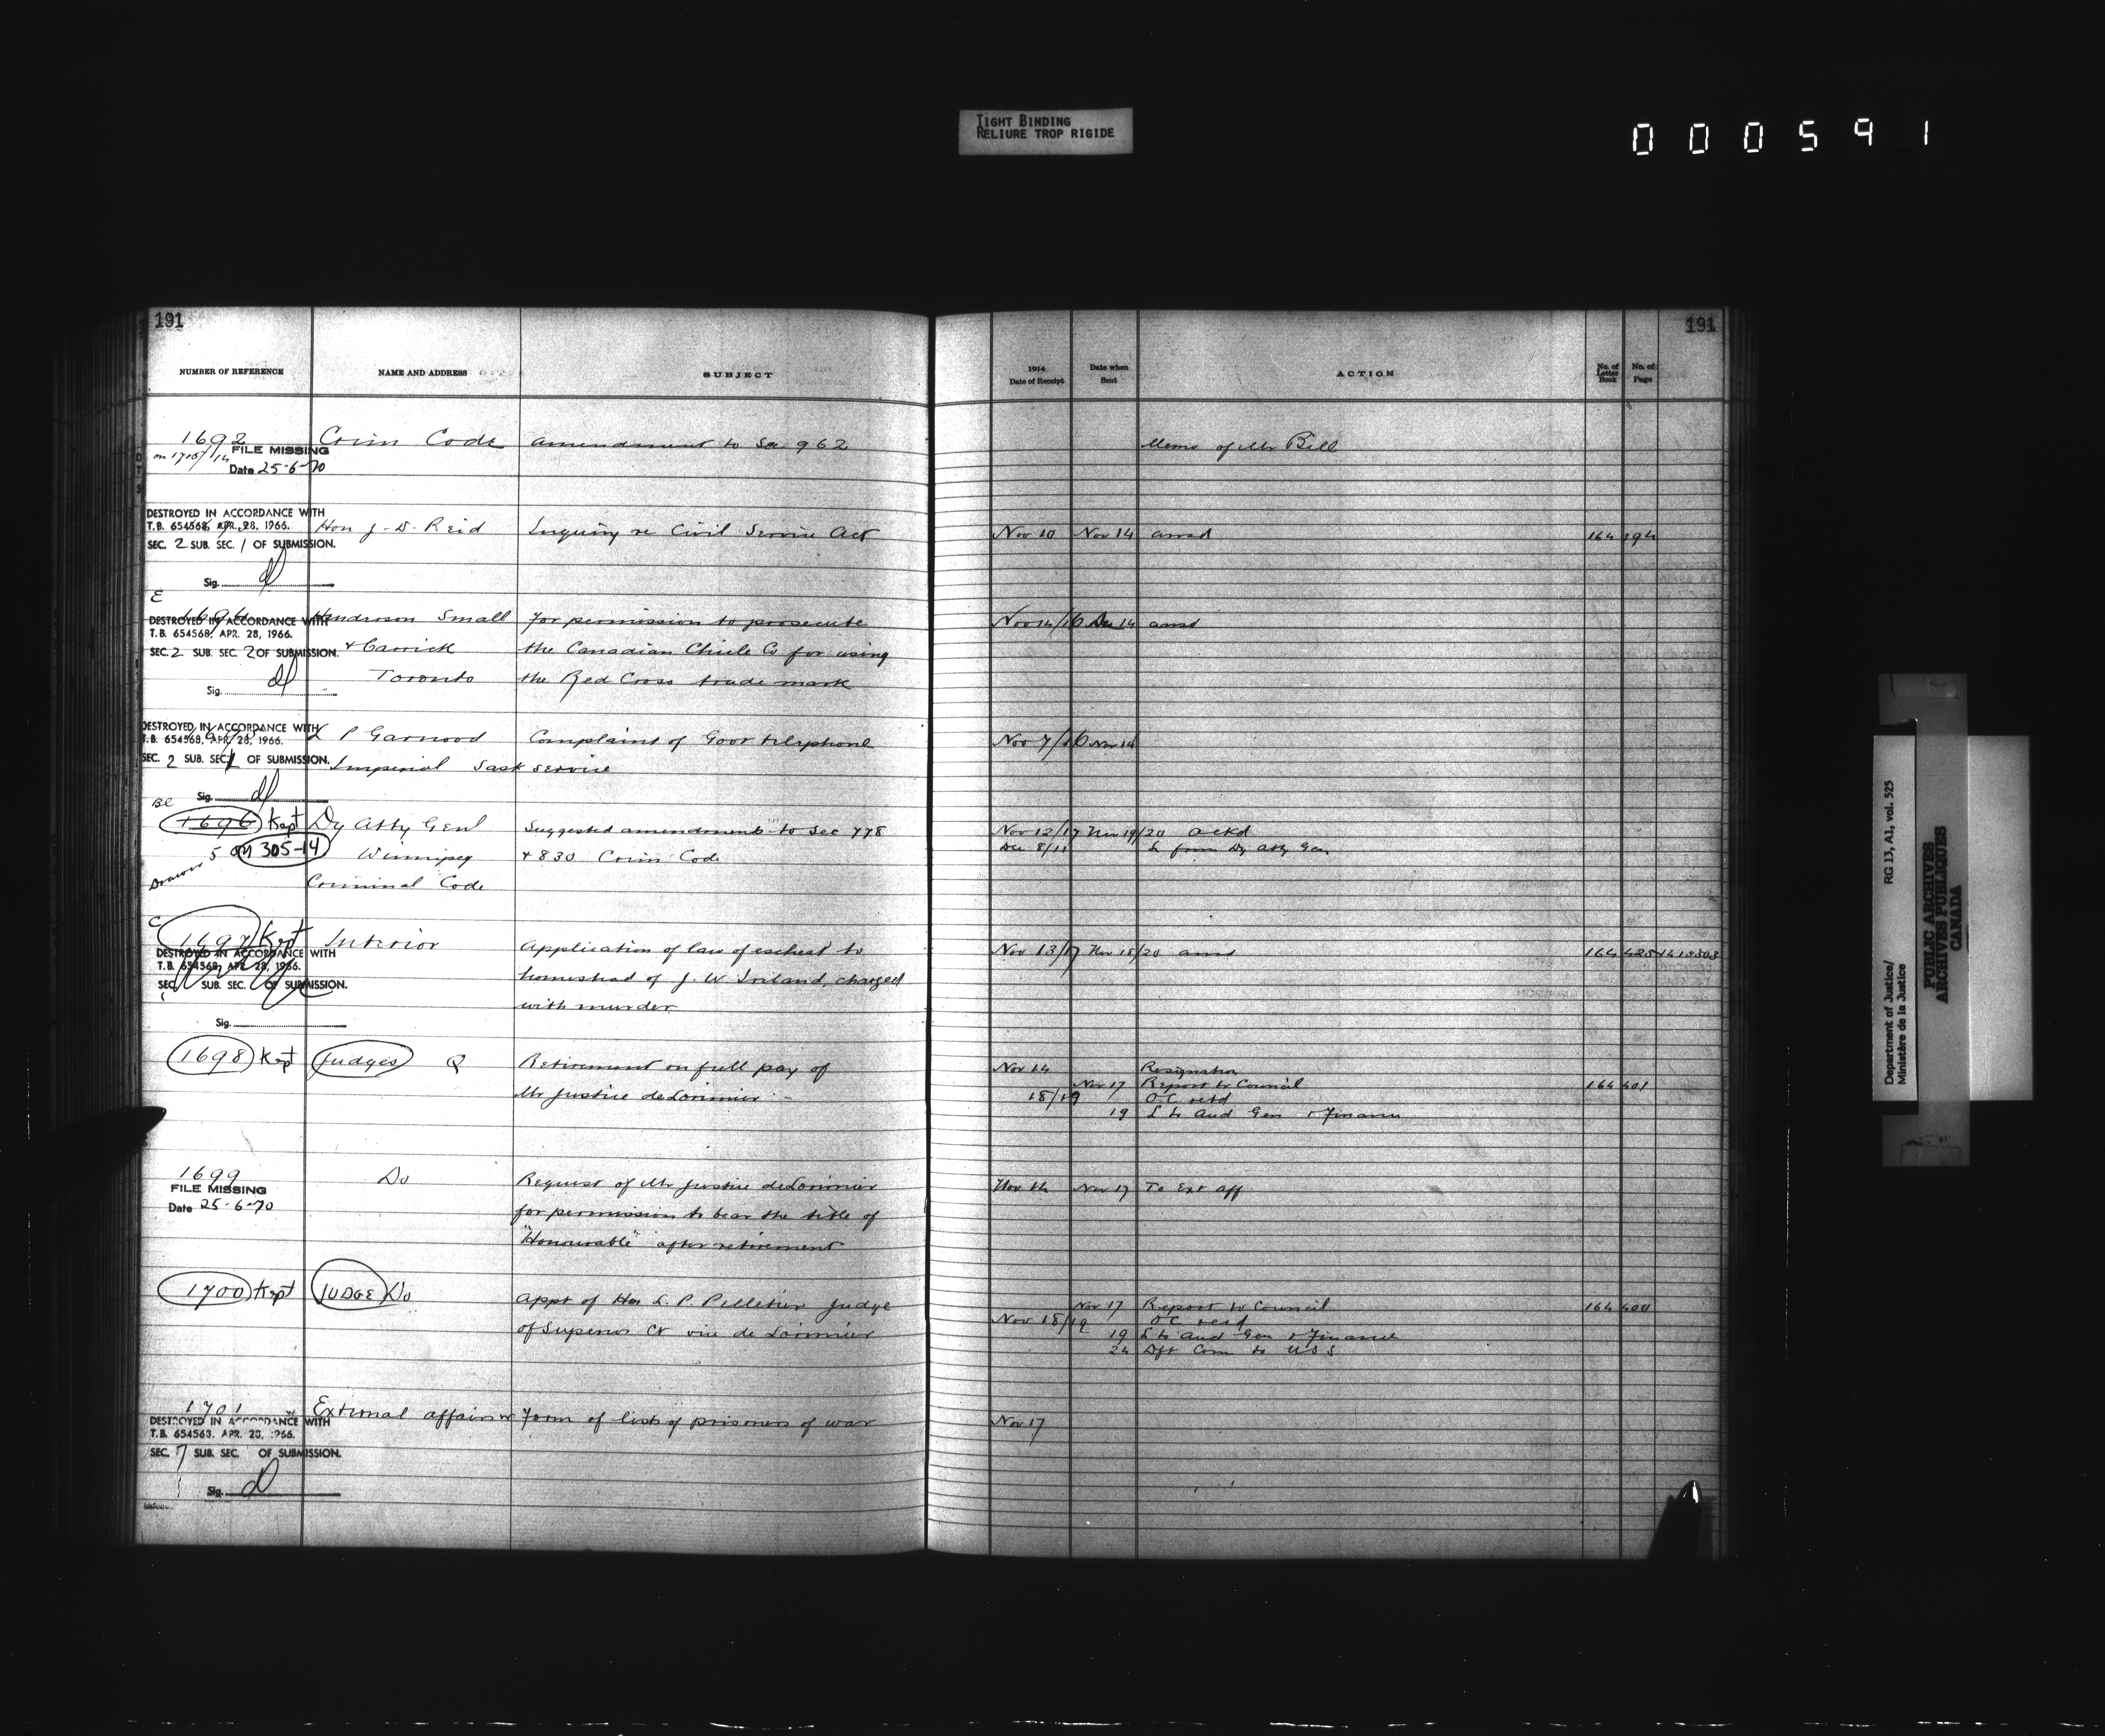 TIGHT BINDING
RELIURE TROP RIGIDE
000591
191
191
NUMBER OF REFERENCE NAME AND ADDRESS SUBJECT 1914 Date of Receipt Date when Sent ACTION No. of Letter Book No. of Page
1692 Crim Code amendment to Sec 962 Memo of Mr Bill
on 1715/14 FILE MISSING
Date 25-6-70
DESTROYED IN ACCORDANCE WITH
T.B. 654568, APR. 28, 1966. Hon J. D. Reid Inquiry re Civil Service Act Nov 10 Nov 14 ansd 164 394
SEC. 2 SUB. SEC. 1 OF SUBMISSION.
Sig.
E
1694 Henderson Small for permission to prosecute Nov 14/16 Dec 14 ansd
DESTROYED IN ACCORDANCE WITH
T.B. 654568, APR. 28, 1966.
SEC. 2 SUB. SEC. 2 OF SUBMISSION. & Carrick the Canadian Chicle Co for using
Sig. Toronto the Red Cross trade mark
DESTROYED IN ACCORDANCE WITH
T.B. 654568, APR. 28, 1966. P Garwood Complaint of Govt telephone Nov 7/16 Nov 14
SEC. 2 SUB. SEC. 1 OF SUBMISSION. Imperial Sask service
Sig.
BC
1696 Kept Dy Atty Genl Suggested amendments to Sec 778 Nov 12/17 Nov 19/20 ackd
5 on 305-14 Winnipeg & 830 Crim Code Dec 8/11 L from Dy Atty Gen
Drawer Criminal Code
C
1697 Kept Interior Application of law of escheat to Nov 13/17 Nov 18/20 ansd 164 425
DESTROYED IN ACCORDANCE WITH
T.B. 654568, APR. 28, 1966. homestead of J. W. Ireland, charged
SEC. SUB. SEC. OF SUBMISSION. with murder
Sig.
1698 Kept Judges Q Retirement on full pay of Nov 14 Resignation
Nov 17 Report to Council 164 401
Mr Justice deLorimier 18/19 O C retd
19 L to Aud Gen & Finance
1699 Do Request of Mr Justice deLorimier Nov 14 Nov 17 To Ext aff
FILE MISSING
Date 25-6-70 for permission to bear the title of
"Honourable" after retirement
1700 Kept JUDGE Do Appt of Hon L. P. Pelletier Judge Nov 17 Report to Council 164 400
of Superior Ct vice de Lorimier Nov 18/19 O C recd
19 L to Aud Gen & Finance
24 Dft Com to U S S
1701 External affairs Form of list of prisoners of war Nov 17
DESTROYED IN ACCORDANCE WITH
T.B. 654568, APR. 28, 1966.
SEC. 7 SUB. SEC. OF SUBMISSION.
Sig.
Department of Justice/ RG 13, A1, vol. 525
Ministère de la Justice
PUBLIC ARCHIVES
ARCHIVES PUBLIQUES
CANADA